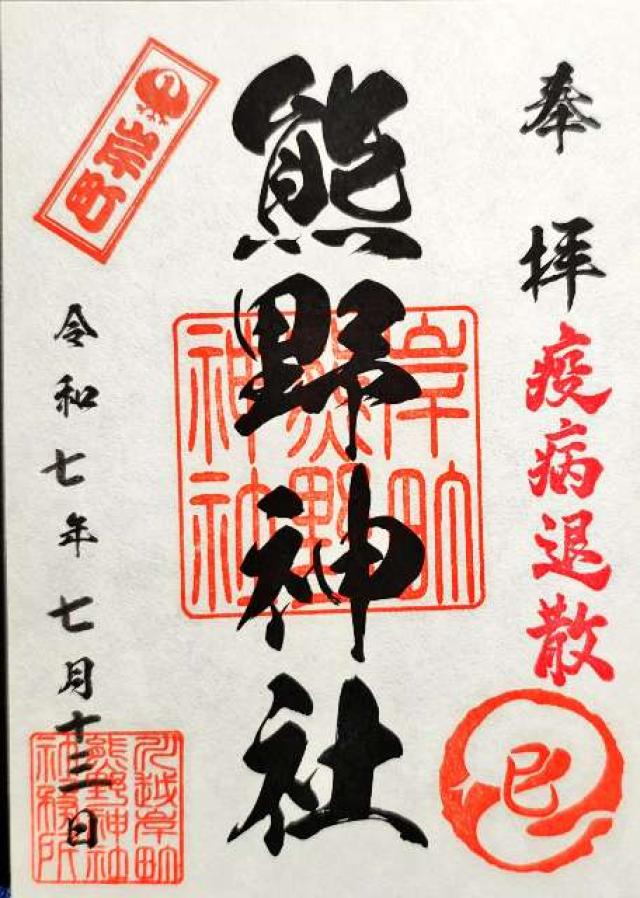 奉拝
疫病退散
巳
熊野神社
岸町
熊野
神社
岸町
令和七年七月十三日
川越岸町
熊野神社
社務所